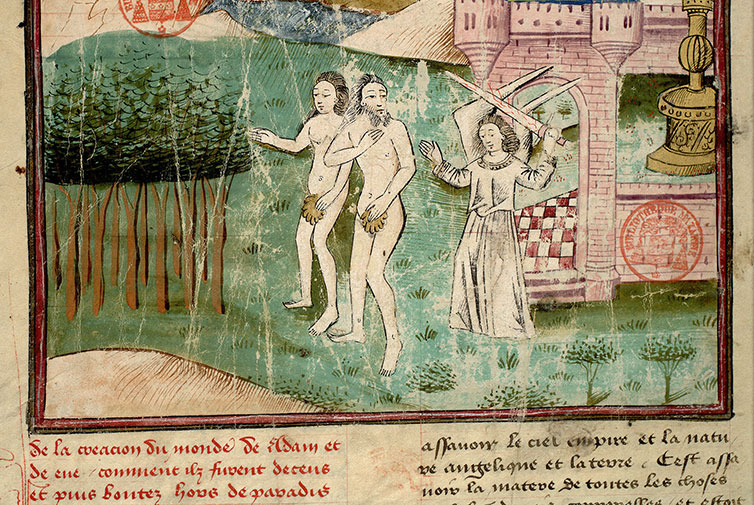 de la creacion du monde de Adam et
de eue / comment ilz furent deceus
et puis boutez hors de paradis
assauoir le ciel empire et la natu
re angelique et la terre / Cest assa
uoir la matere de toutes les choses
et estoit